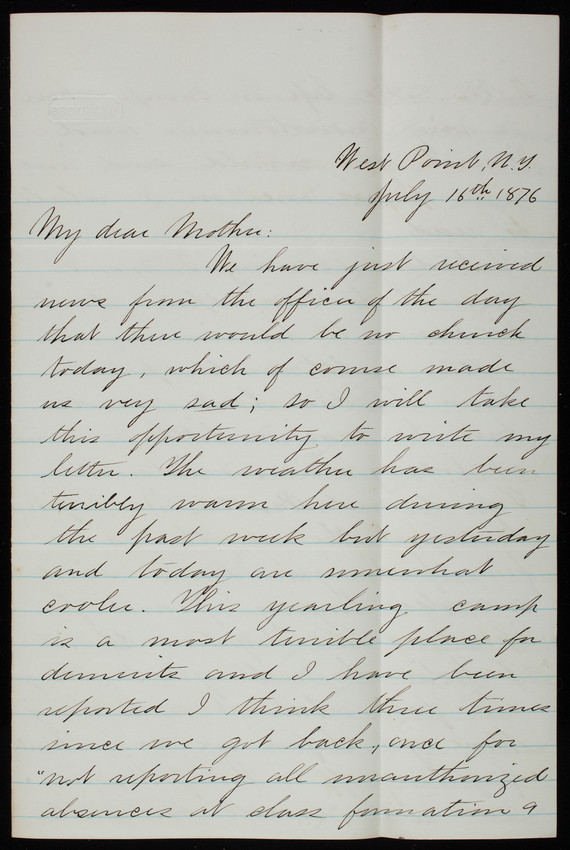 West Point, N.Y.
July 16th 1876
My dear Mother:
We have just received
news from the officer of the day
that there would be no church
today, which of course made
us very sad; so I will take
this opportunity to write my
letter. The weather has been
terribly warm here during
the past week but yesterday
and today are somewhat
cooler. This yearling camp
is a most terrible place for
demerits and I have been
reported I think three times
since we got back, once for
"not reporting all unauthorized
absences at class formation 9